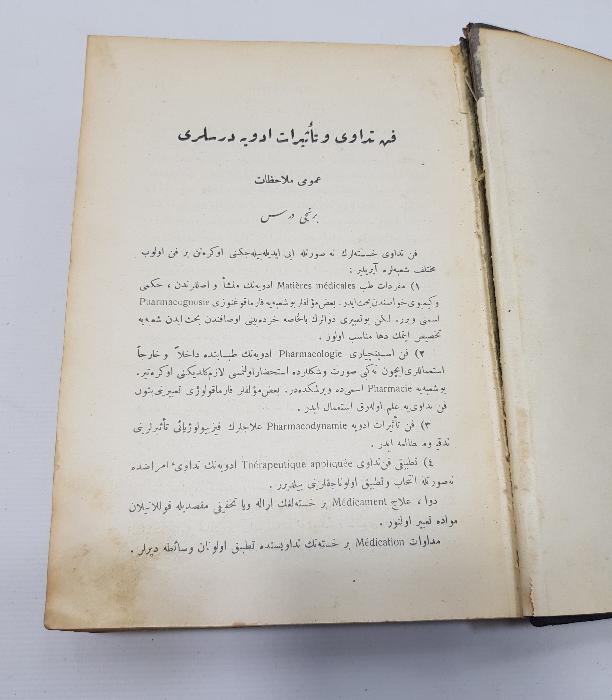 فن تداوی و تأثیرات ادویه درسلری
عمومی ملاحظات
برنجی درس
فن تداوی خسته‌لرك نه صورتله ایی ایدیله‌بیله‌جكنی اوكره‌تن بر فن اولوب
مختلف شعبه‌لره آیریلیر :
١) مفردات طب Matières médicales ادویه‌نك منشأ و اصللرندن ، حكمی
وكیموی خواصندن بحث ایدر. بعض مؤلفلر بوشعبه‌یه فارماقوغنوزی Pharmacognosie
اسمنی ویرر. لكن بوتعبیری دوالرك بالخاصه خرده‌بینی اوصافندن بحث ایدن شعبه‌یه
تخصیص ایتمك دها مناسب اولور .
٢) فن اسپنچیاری Pharmacologie ادویه‌نك طبابتده داخلاً و خارجاً
استعماللری ایچون نه‌كبی صورت وشكللرده استحضار اولنمسی لازمكلدیكنی اوكره‌تیر.
بوشعبه‌یه Pharmacie اسمی‌ده ویرلمكده‌در. بعض مؤلفلر فارماقولوژی تعبیرینی بتون
فن تداوی‌یه علم اوله‌رق استعمال ایدر .
٣) فن تأثیرات ادویه Pharmacodynamie علاجلرك فیزیولوژیائی تأثیرلرینی
تدقیق ومطالعه ایدر .
٤) تطبیقی فن تداوی Thérapeutique appliquée ادویه‌نك تداوئ امراضده
نه صورتله انتخاب وتطبیق اولوناجقلرینی بیلدیرر .
دوا ، علاج Médicament بر خسته‌لغك ازاله ویا تخفیفی مقصدیله قوللانیلان
مواده تعبیر اولنور .
مداوات Médication بر خسته‌نك تداویسنده تطبیق اولونان وسائطه دیرلر .